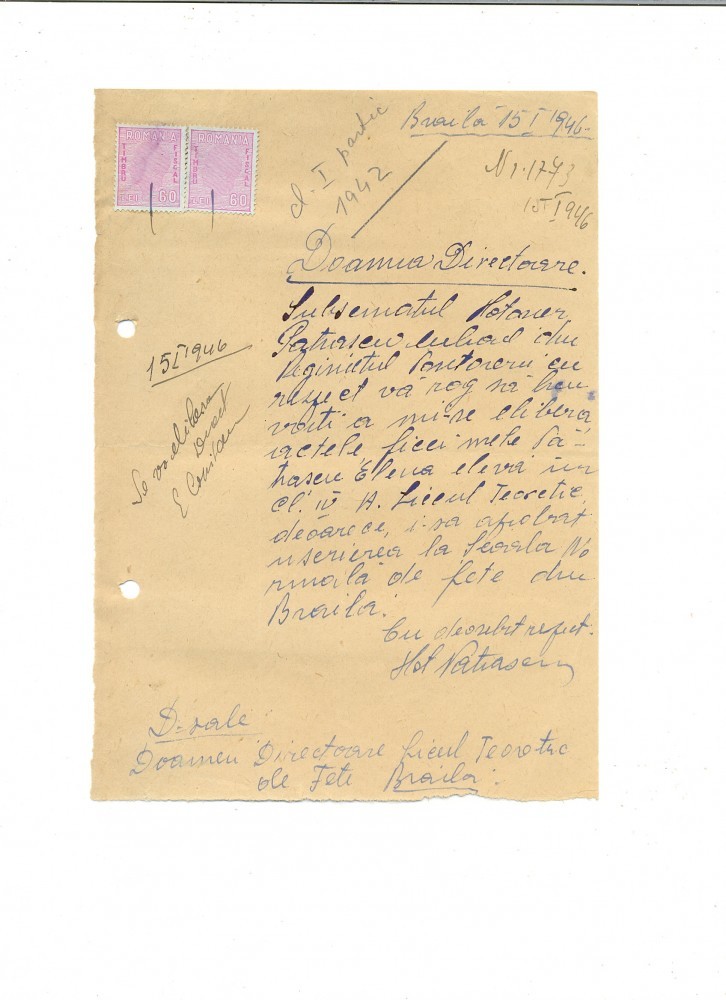 Braila 15 I 1946
cl. I partic
1942
Nr. 1773
15 I 1946
ROMANIA
TIMBRU FISCAL
LEI 60
ROMANIA
TIMBRU FISCAL
LEI 60
Doamna Directoare.
Subsematul
Patrascu din
Reginietul cu
respect vă rog să bine
voiti a mi-se elibera
actele ficei mele Pă-
trascu Elena elevă in
cl. IV A. Liceul Teoretic,
deoarece, i-sa aprobat
inscrierea la Scoala No
rmală de fete din
Braila.
Cu deosebit respect.
Patrascu
15 I 1946
Se va elibera
Direct
D-sale
Doamnei Directoare Liceul Teoretic
de Fete Braila.